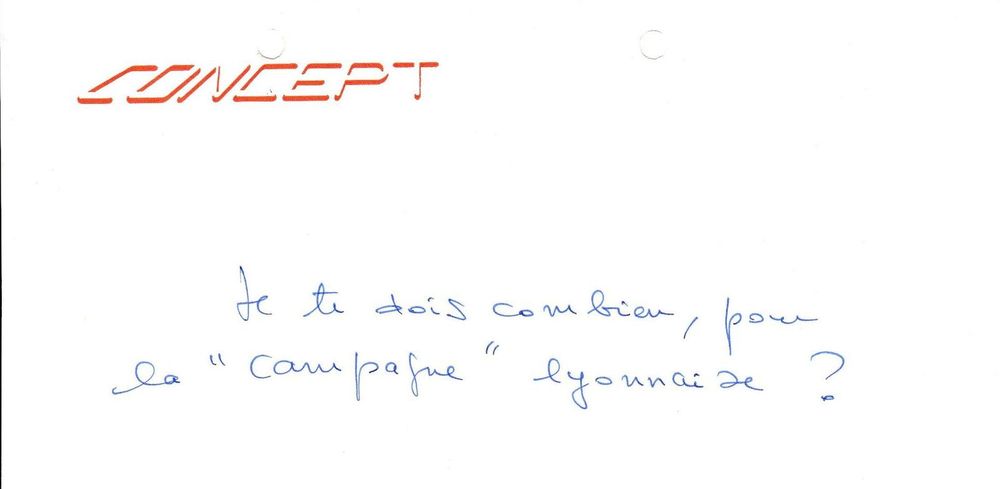 CONCEPT
Je te dois combien, pour
la "campagne" lyonnaise ?